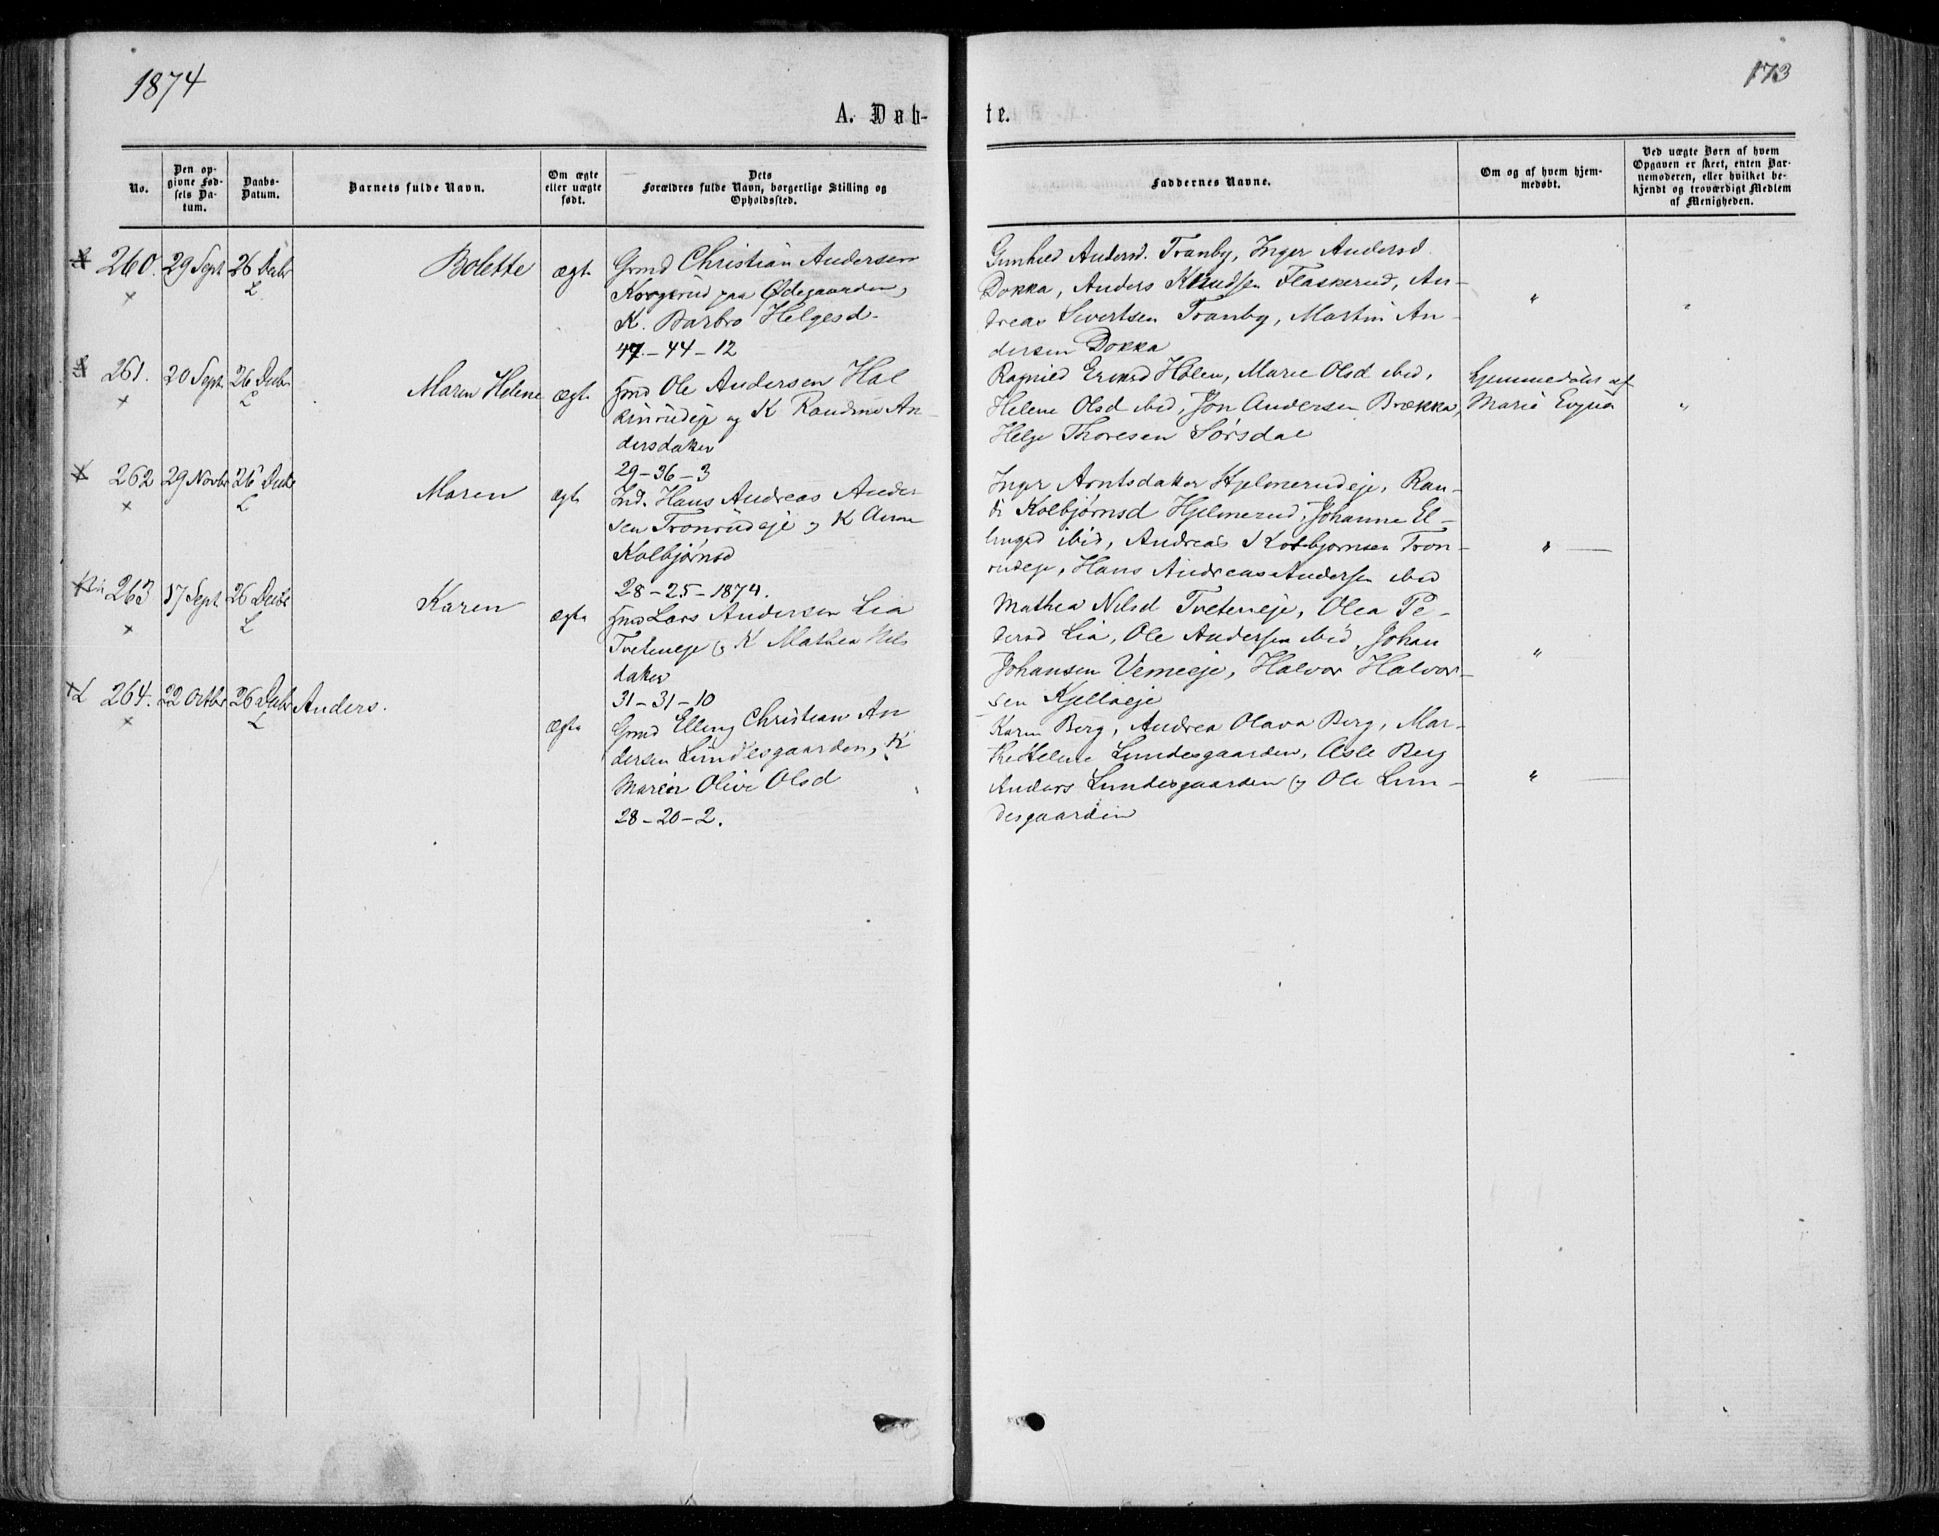 1874
173
A. Døb-
te.
No.
Den op-
givne Fød-
sels Da-
tum.
Daabs-
Datum.
Barnets fulde Navn.
Om ægte
eller uægte
født.
Dets
Forældres fulde Navn, borgerlige Stilling og
Opholdssted.
Faddernes Navne.
Om og af hvem hjem-
medøbt.
Ved uægte Børn af hvem
Opgaven er skeet, enten Bar-
nemoderen, eller hvilket be-
kjendt og troværdigt Medlem
af Menigheden.
260. 29 Sept 26 Decbr Bolette ægte
L
Grmd Christian Andersen
Korgerud paa Ødegaarden,
K. Barbro Helgesd.
47-44-12
Gunhild Andersd. Tranby, Inger Andersd.
Dokka, Anders Knudsen Flaskerud, An-
dreas Sivertsen Tranby, Martin An-
dersen Dokka
"
"
261. 20 Sept 26 Decbr Maren Helene ægte
L
Hmd Ole Andersen Hal
og K Randine An-
dersdatter
29-36-3
Ragnild Holen, Marie Olsd ibid,
Helene Olsd ibid, Jon Andersen Brækka,
Helge Thoresen Sørsdal
hjemmedøbt af
Marie
"
262 29 Novbr 26 Decbr Maren ægte
L
Ind. Hans Andreas Ander-
sen Tronrudeje og K Anne
Kolbjørnsd
28-25-1874.
Inger Arntsdatter Hjelmerudeje, Ran-
di Kolbjørnsd Hjelmerud, Johanne El-
lingsd ibid, Andreas Kolbjørnsen Tron-
rudeje, Hans Andreas Andersen ibid
"
263 17 Sept 26 Decbr Karen ægte
L
Hmd Lars Andersen Lia
Tveteneje og K Mathea Nils
datter
31-31-10
Mathea Nilsd Tveteneje, Olea Pe-
dersd Lia, Ole Andersen ibid, Johan
Johansen Vemeeje, Halvor Halvor-
sen
"
264. 22 Octbr 26 Decbr Anders. ægte
L
Grmd Elling Christian An
dersen Lundesgaarden, K
Maren Olive Olsd
28-20-2.
Karen Berg, Andrea Olava Berg, Mar-
the Helene Lundesgaarden, Asle Berg
Anders Lundesgaarden og Ole Lun-
desgaarden
"